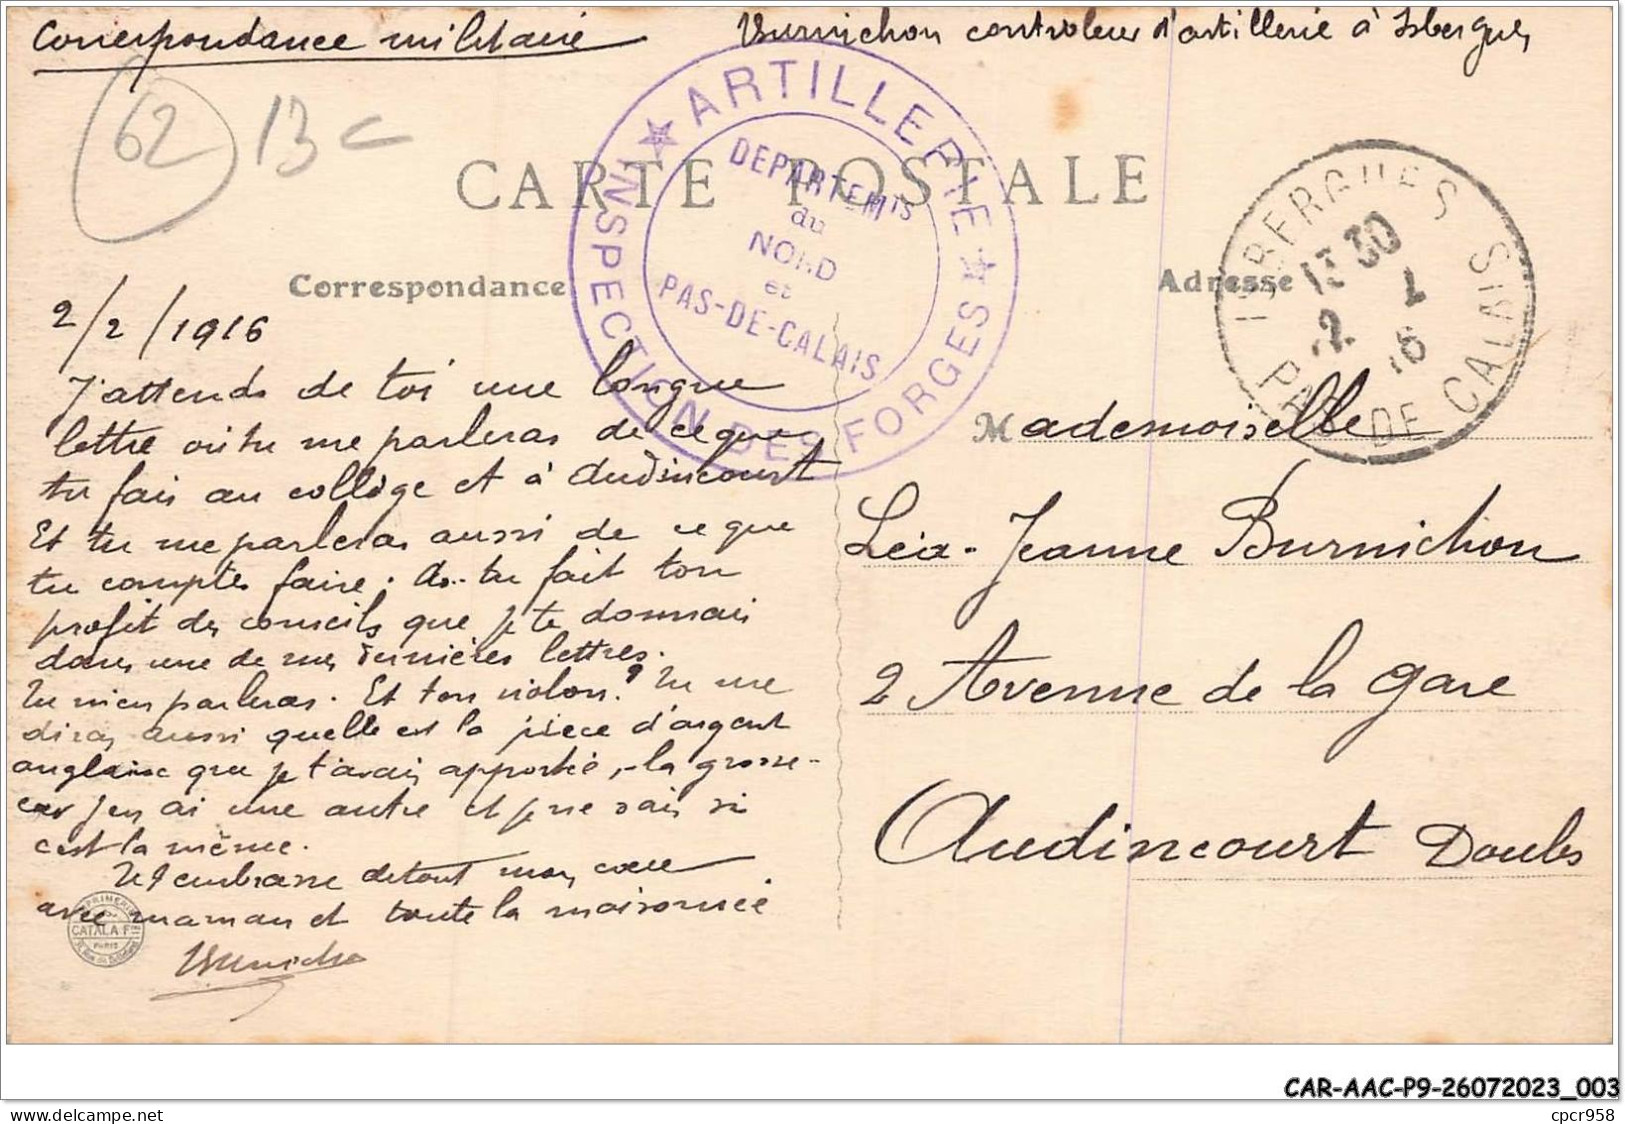 Correspondance militaire
Burnichon controleur d'artillerie à Isbergues
62 13 c
★ ARTILLERIE ★
INSPECTION DES FORGES
DEPARTEMts
du
NORD
et
PAS-DE-CALAIS
CARTE POSTALE
ISBERGUES
30
2 16
PAS DE CALAIS
Correspondance
Adresse
2/2/1916
J'attends de toi une longue
lettre où tu me parleras de ce que
tu fais au collège et à Audincourt
Et tu me parleras aussi de ce que
tu comptes faire. As-tu fait ton
profit des conseils que je te donnais
dans une de mes dernières lettres.
Tu m'en parleras. Et ton violon? Tu me
diras aussi quelle est la pièce d'argent
anglaise que je t'avais apportée, - la grosse -
car j'en ai une autre et je ne sais si
c'est la même.
Je t'embrasse de tout mon cœur
avec maman et toute la maisonnée
Burnichon
Mademoiselle
Léa-Jeanne Burnichon
2 Avenue de la Gare
Audincourt Doubs
IMPRIMERIE
CATALA Fres
PARIS
CAR-AAC-P9-26072023_003
delcampe.net
cpcr958